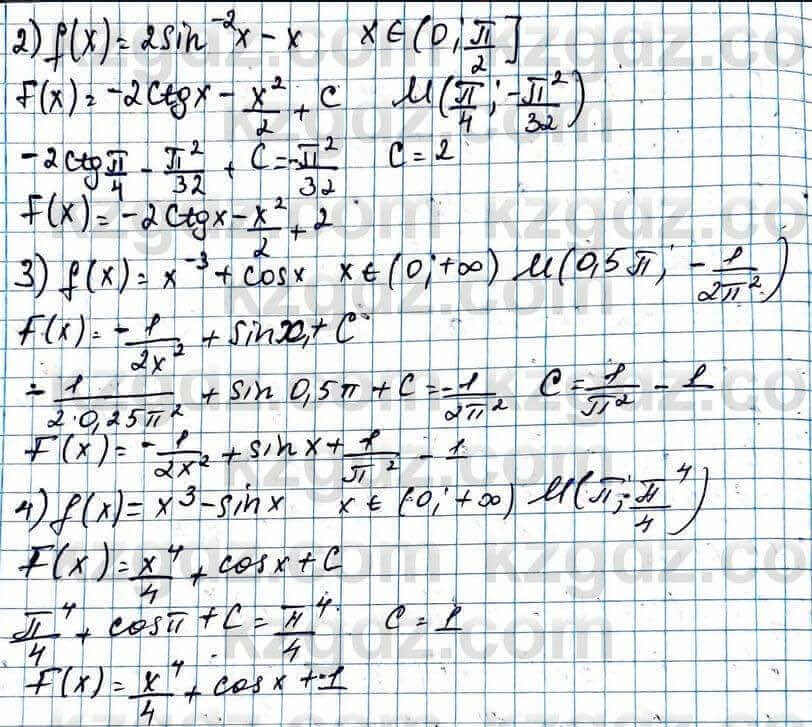 2) f(x) = 2sin⁻²x - x   x ∈ (0; π/2]
F(x) = -2ctgx - x²/2 + C   M(π/4; -π²/32)
-2ctg π/4 - π²/32 + C = -π²/32   C = 2
F(x) = -2ctgx - x²/2 + 2
3) f(x) = x⁻³ + cosx   x ∈ (0; +∞) M(0,5π; -1/2π²)
F(x) = -1/2x² + sinx + C
-1/2·0,25π² + sin 0,5π + C = -1/2π²   C = 1/π² - 1
F(x) = -1/2x² + sinx + 1/π² - 1
4) f(x) = x³ - sinx   x ∈ (-0; +∞) M(π; π⁴/4)
F(x) = x⁴/4 + cosx + C
π⁴/4 + cosπ + C = π⁴/4   C = 1
F(x) = x⁴/4 + cosx + 1
kzgdz.com